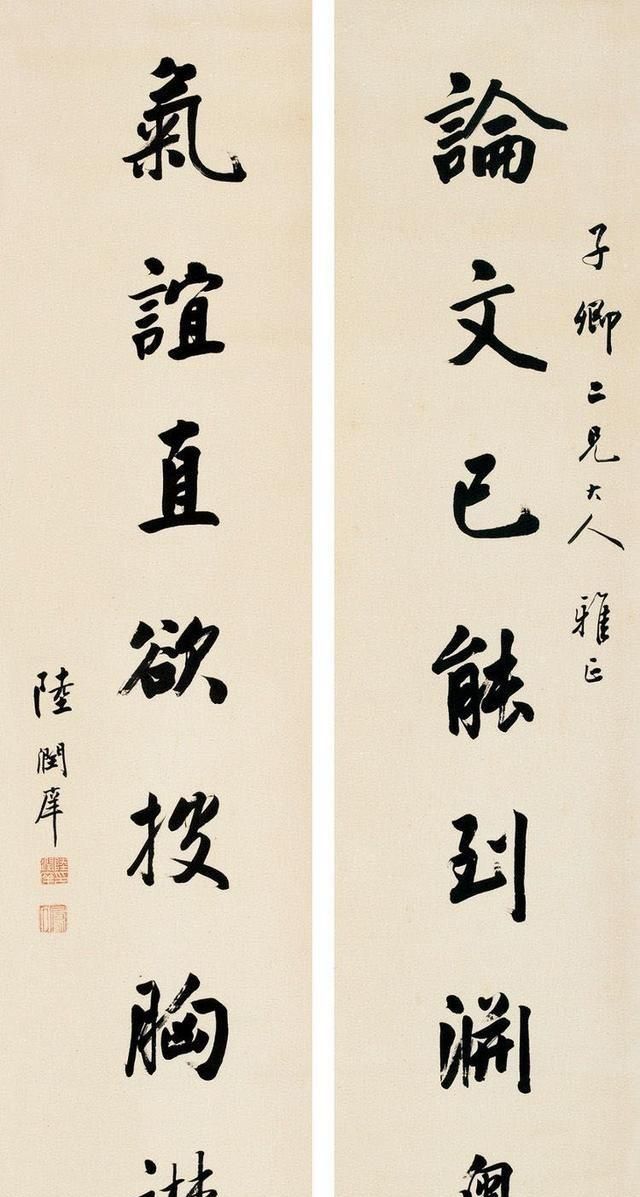 子卿二兄大人雅正
論文已能到淵奧
氣誼直欲披胸襟
陸潤庠